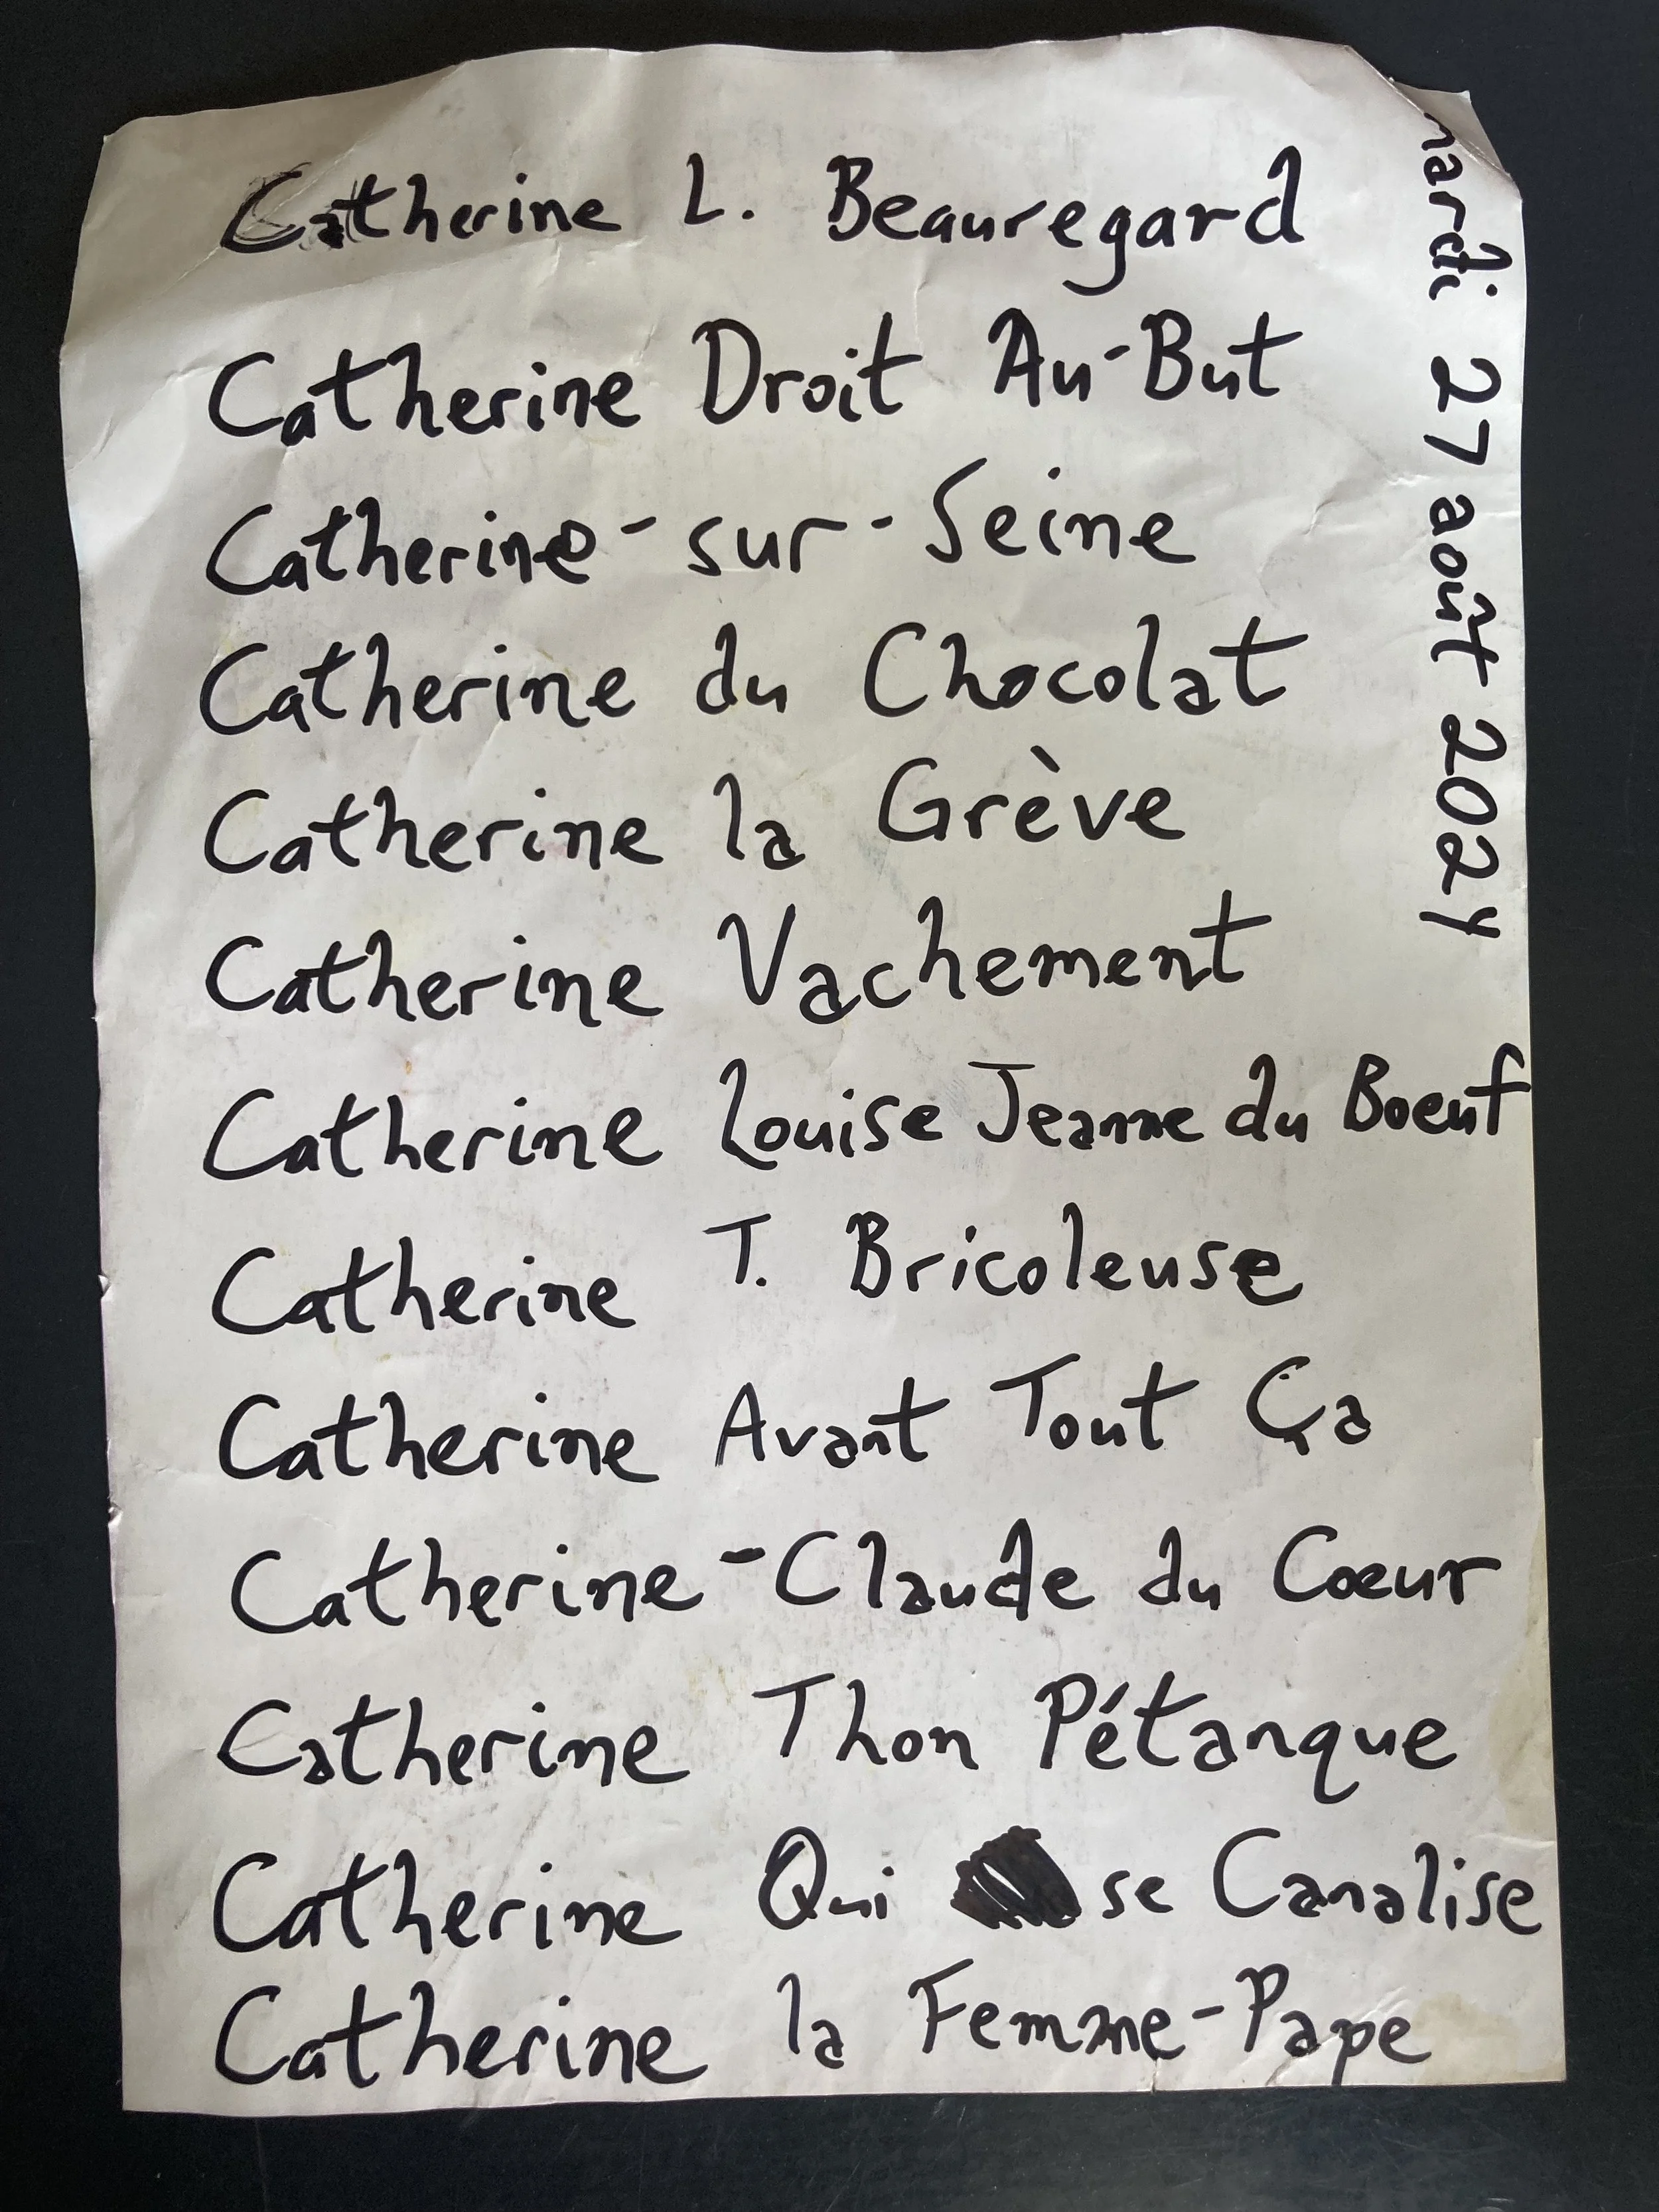 Catherine L. Beauregard
Catherine Droit Au-But
Catherine-sur-Seine
Catherine du Chocolat
Catherine la Grève
Catherine Vachement
Catherine Louise Jeanne du Boeuf
Catherine T. Bricoleuse
Catherine Avant Tout Ça
Catherine-Claude du Cœur
Catherine Thon Pétanque
Catherine Qui se Canalise
Catherine la Femme-Pape
mardi 27 août 2024